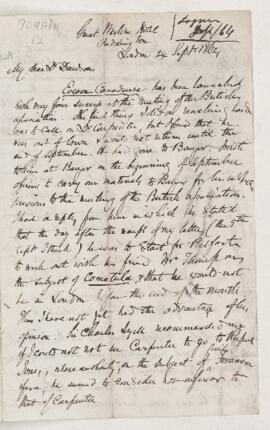 709A/11
12
Logan
Sept/64
Great Western Hotel
Paddington
London 24 Sept 1864
My dear Dr Dawson
Eozoon Canadense has been launched
with very fair success at the meeting of the British
Association. The first thing I did on reaching London
was to call on Dr Carpenter, but I found that he
was out of town & would not return until the
end of September. He had gone to Bangor. I wrote
to him at Bangor in the beginning of September
offering to carry our materials to Bangor for his
previous to the meeting of the British Association.
I had a reply from him in which he stated
that the day after the receipt of my letter (the 5th
Sept I think) he was to start for Belfast
to work out with his friend Mr Thompson
the subject of Comatula & that he would not
be in London till the end of the month
Thus I have not yet had the advantage of his
opinion. Sir Charles Lyell recommended me
if I could not see Carpenter to go to Rupert
Jones, whose authority on the subject of foraminifera
he seemed to consider not inferior to
that of Carpenter